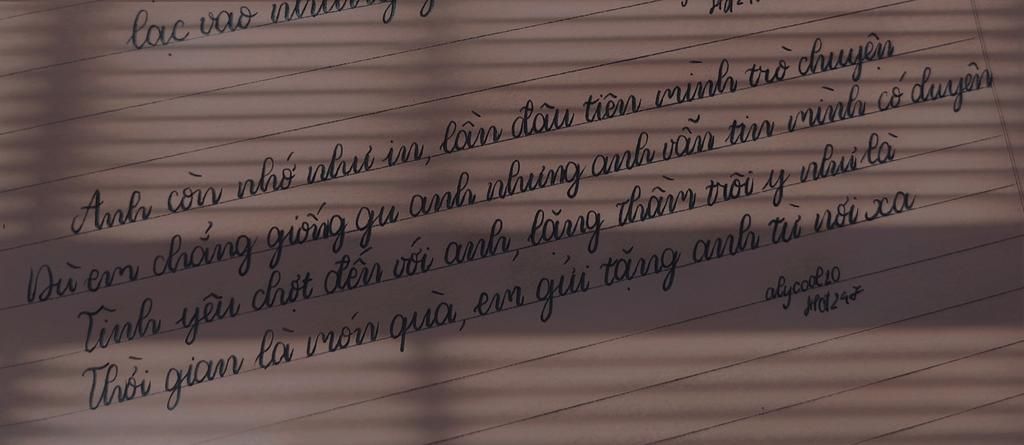 lạc vào những
Anh còn nhớ như in, lần đầu tiên mình trò chuyện
Dù em chẳng giống gu anh nhưng anh vẫn tin mình có duyên
Tình yêu chợt đến với anh, lặng thầm trôi y như là
Thời gian là món quà, em gửi tặng anh từ nơi xa
alycool20